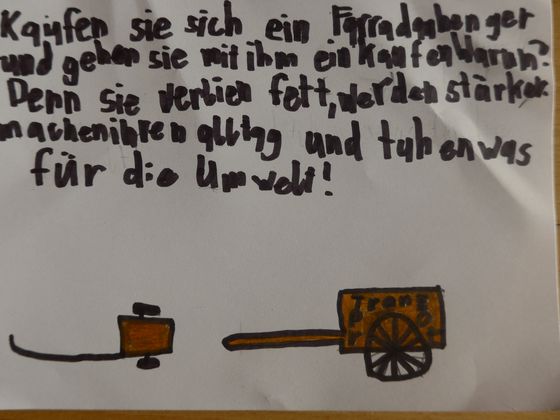 Kaufen sie sich ein Farradanhenger
und gehen sie mit ihm einkaufen Warum?
Denn sie verlien fett, werden stärker
machen ihren alltag und tuhen was
für die Umwelt!
Tranz
p o
r t